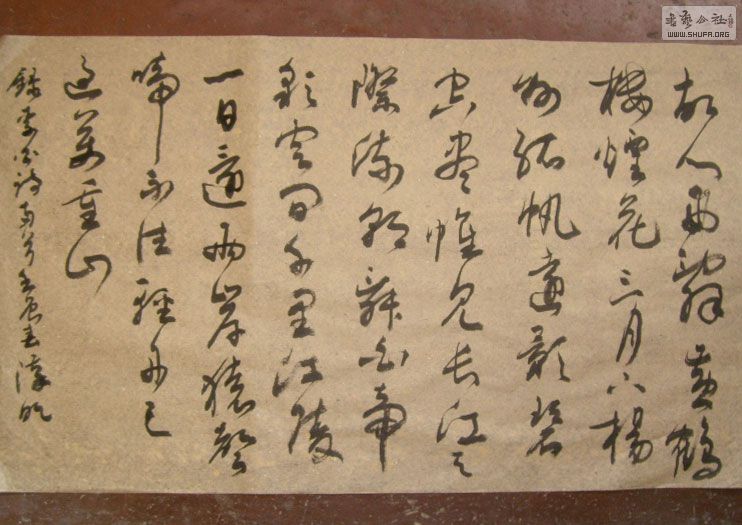 故人西辞黄鹤
楼煌花三月下楊
州孤帆遠影碧
空尽惟见长江天
際流朝辞白帝
彩雲间千里江陵
一日還两岸猿聲
啼不住轻舟已
過万重山
錄李白诗两首壬辰春
書藝公社
WWW.SHUFA.ORG